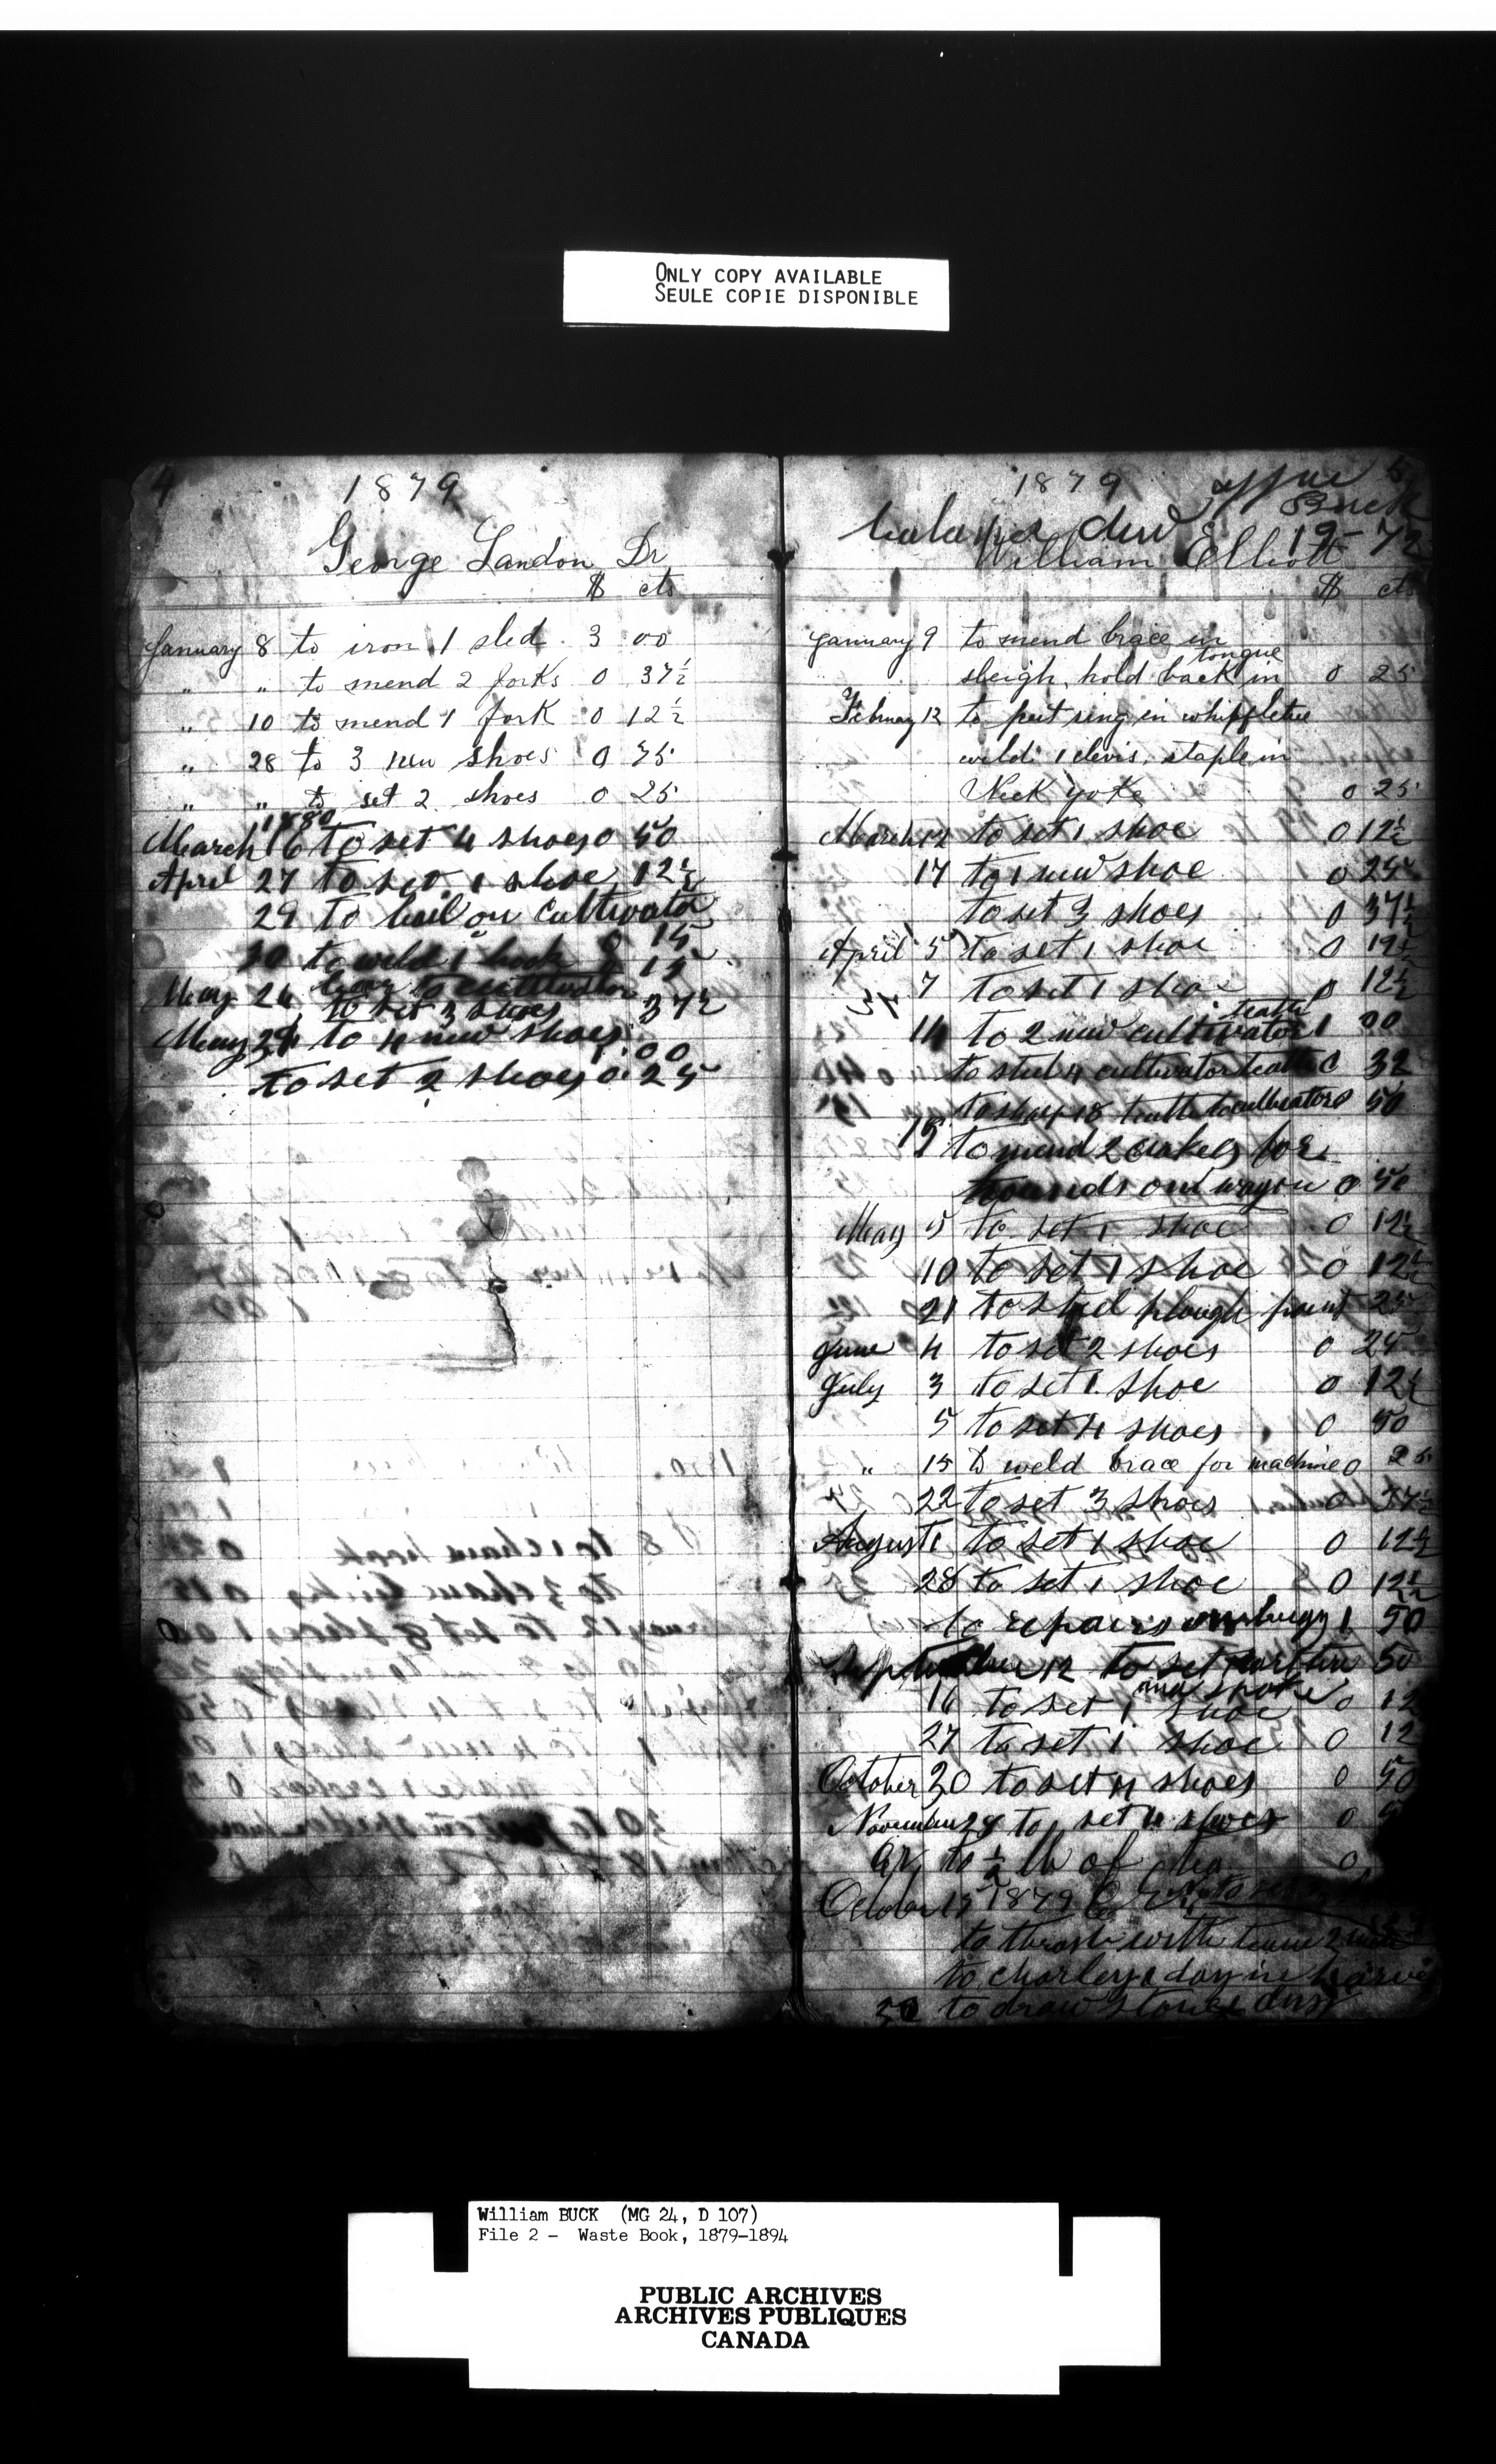 ONLY COPY AVAILABLE
SEULE COPIE DISPONIBLE
4
1879
George Landon Dr
$ cts
January 8 to iron 1 sled 3 00
" " to mend 2 forks 0 37½
" 10 to mend 1 fork 0 12½
" 28 to 3 new shoes 0 75
" " to set 2 shoes 0 25
1880
March 16 to set 4 shoes 0 50
April 27 to set 1 shoe 12½
29 to bail on cultivator
15
30 to weld 1 hook 0 15
to cultivator
May 26 to set 3 shoes 37½
May 29 to 4 new shoes 1 00
to set 2 shoes 0 25
5
1879
Buck
balance due 19-72
William Elliott
$ cts
January 9 to mend brace in
tongue
sleigh, hold back in 0 25
February 12 to put ring in whippletree
weld 1 clevis, staple in
Neck yoke 0 25
March 12 to set 1 shoe 0 12½
17 to 1 new shoe 0 25
to set 3 shoes 0 37½
April 5 to set 1 shoe 0 12½
7 to set 1 shoe 0 12½
teath
14 to 2 new cultivator 1 00
to steel 4 cultivator teath 0 32
18 teath to cultivator 0 50
19 to mend 2
wagon 0 50
May 5 to set 1 shoe 0 12½
10 to set 1 shoe 0 12½
21 to steel plough point 25
June 4 to set 2 shoes 0 25
July 3 to set 1 shoe 0 12½
5 to set 4 shoes 0 50
" 15 to weld brace for machine 0 25
22 to set 3 shoes 0 37½
August 1 to set 1 shoe 0 12½
28 to set 1 shoe 0 12½
to repairs on buggy 1 50
September 12 to set cart tire 50
and spoke
16 to set 1 shoe 0 12
27 to set 1 shoe 0 12
October 20 to set 4 shoes 0 50
November 28 to set 4 shoes 0
to ½ lb of tea 0
October 15 1879
to thrash with team 2
to charley 1 day in
to draw stone 1 day
William BUCK (MG 24, D 107)
File 2 - Waste Book, 1879-1894
PUBLIC ARCHIVES
ARCHIVES PUBLIQUES
CANADA